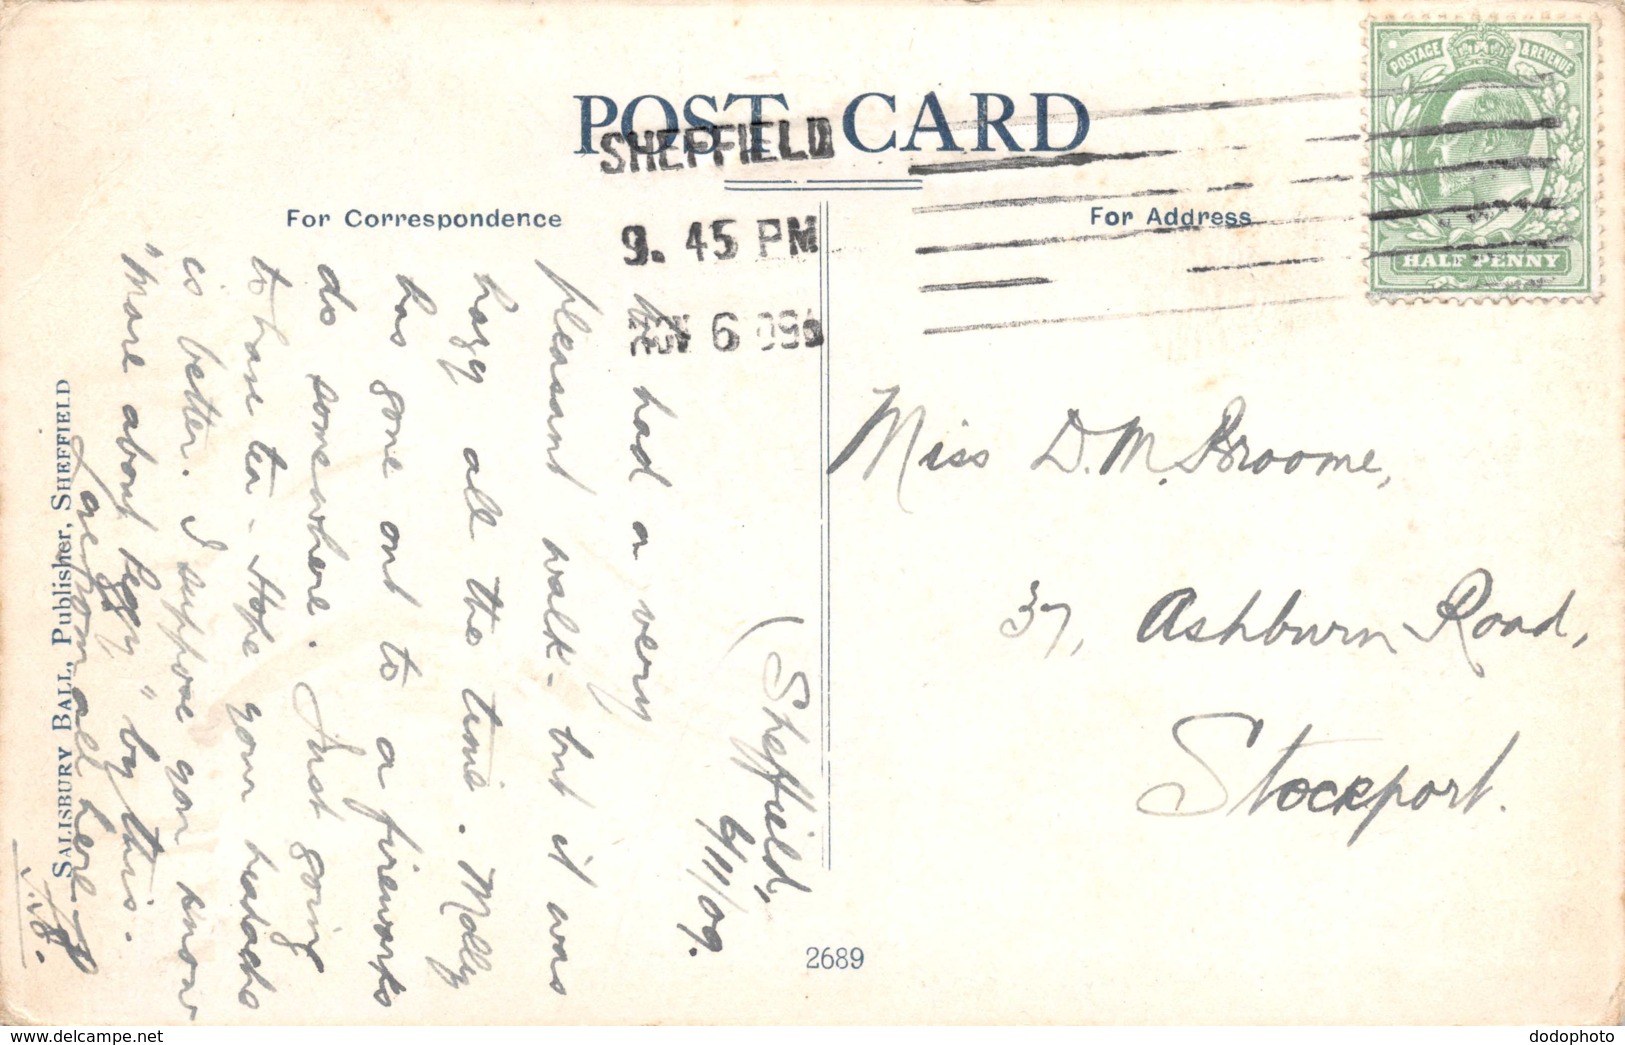 POST CARD
SHEFFIELD
9. 45 PM
NOV 6 09
For Correspondence
For Address
POSTAGE & REVENUE
HALF PENNY
Miss D. M. Broome,
37, Ashburn Road,
Stockport.
(Sheffield,
6/11/09.
We had a very
pleasant walk - but it was
hazy all the time. Molly
has gone out to a fireworks
do somewhere. Just going
to have tea. Hope your headache
is better. I suppose you know
"more about Peggy" by this.
Love from all here
SALISBURY BALL, Publisher, SHEFFIELD
2689
dodophoto